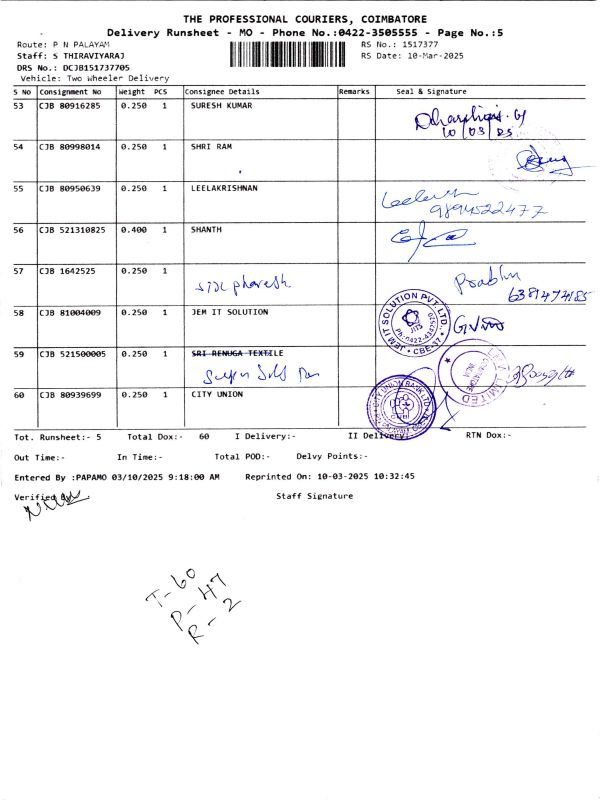 THE PROFESSIONAL COURIERS, COIMBATORE
Delivery Runsheet - MO - Phone No.:0422-3505555 - Page No.:5
Route: P N PALAYAM RS No.: 1517377
Staff: S THIRAVIYARAJ RS Date: 10-Mar-2025
DRS No.: DCJB151737705
Vehicle: Two Wheeler Delivery
S No Consignment No Weight PCS Consignee Details Remarks Seal & Signature
53 CJB 80916285 0.250 1 SURESH KUMAR
10/03/25
54 CJB 80998014 0.250 1 SHRI RAM
55 CJB 80950639 0.250 1 LEELAKRISHNAN
9894522477
56 CJB 521310825 0.400 1 SHANTH
57 CJB 1642525 0.250 1
Prabhu
6381474185
58 CJB 81004009 0.250 1 JEM IT SOLUTION
JEM IT SOLUTION PVT. LTD.
CBE-37
59 CJB 521500005 0.250 1 SRI RENUGA TEXTILE
LIMITED
60 CJB 80939699 0.250 1 CITY UNION
CITY UNION BANK LTD
Tot. Runsheet:- 5 Total Dox:- 60 I Delivery:- II Delivery: RTN Dox:-
Out Time:- In Time:- Total POD:- Delvy Points:-
Entered By :PAPAMO 03/10/2025 9:18:00 AM Reprinted On: 10-03-2025 10:32:45
Verified Staff Signature
T-60
P-47
R-2